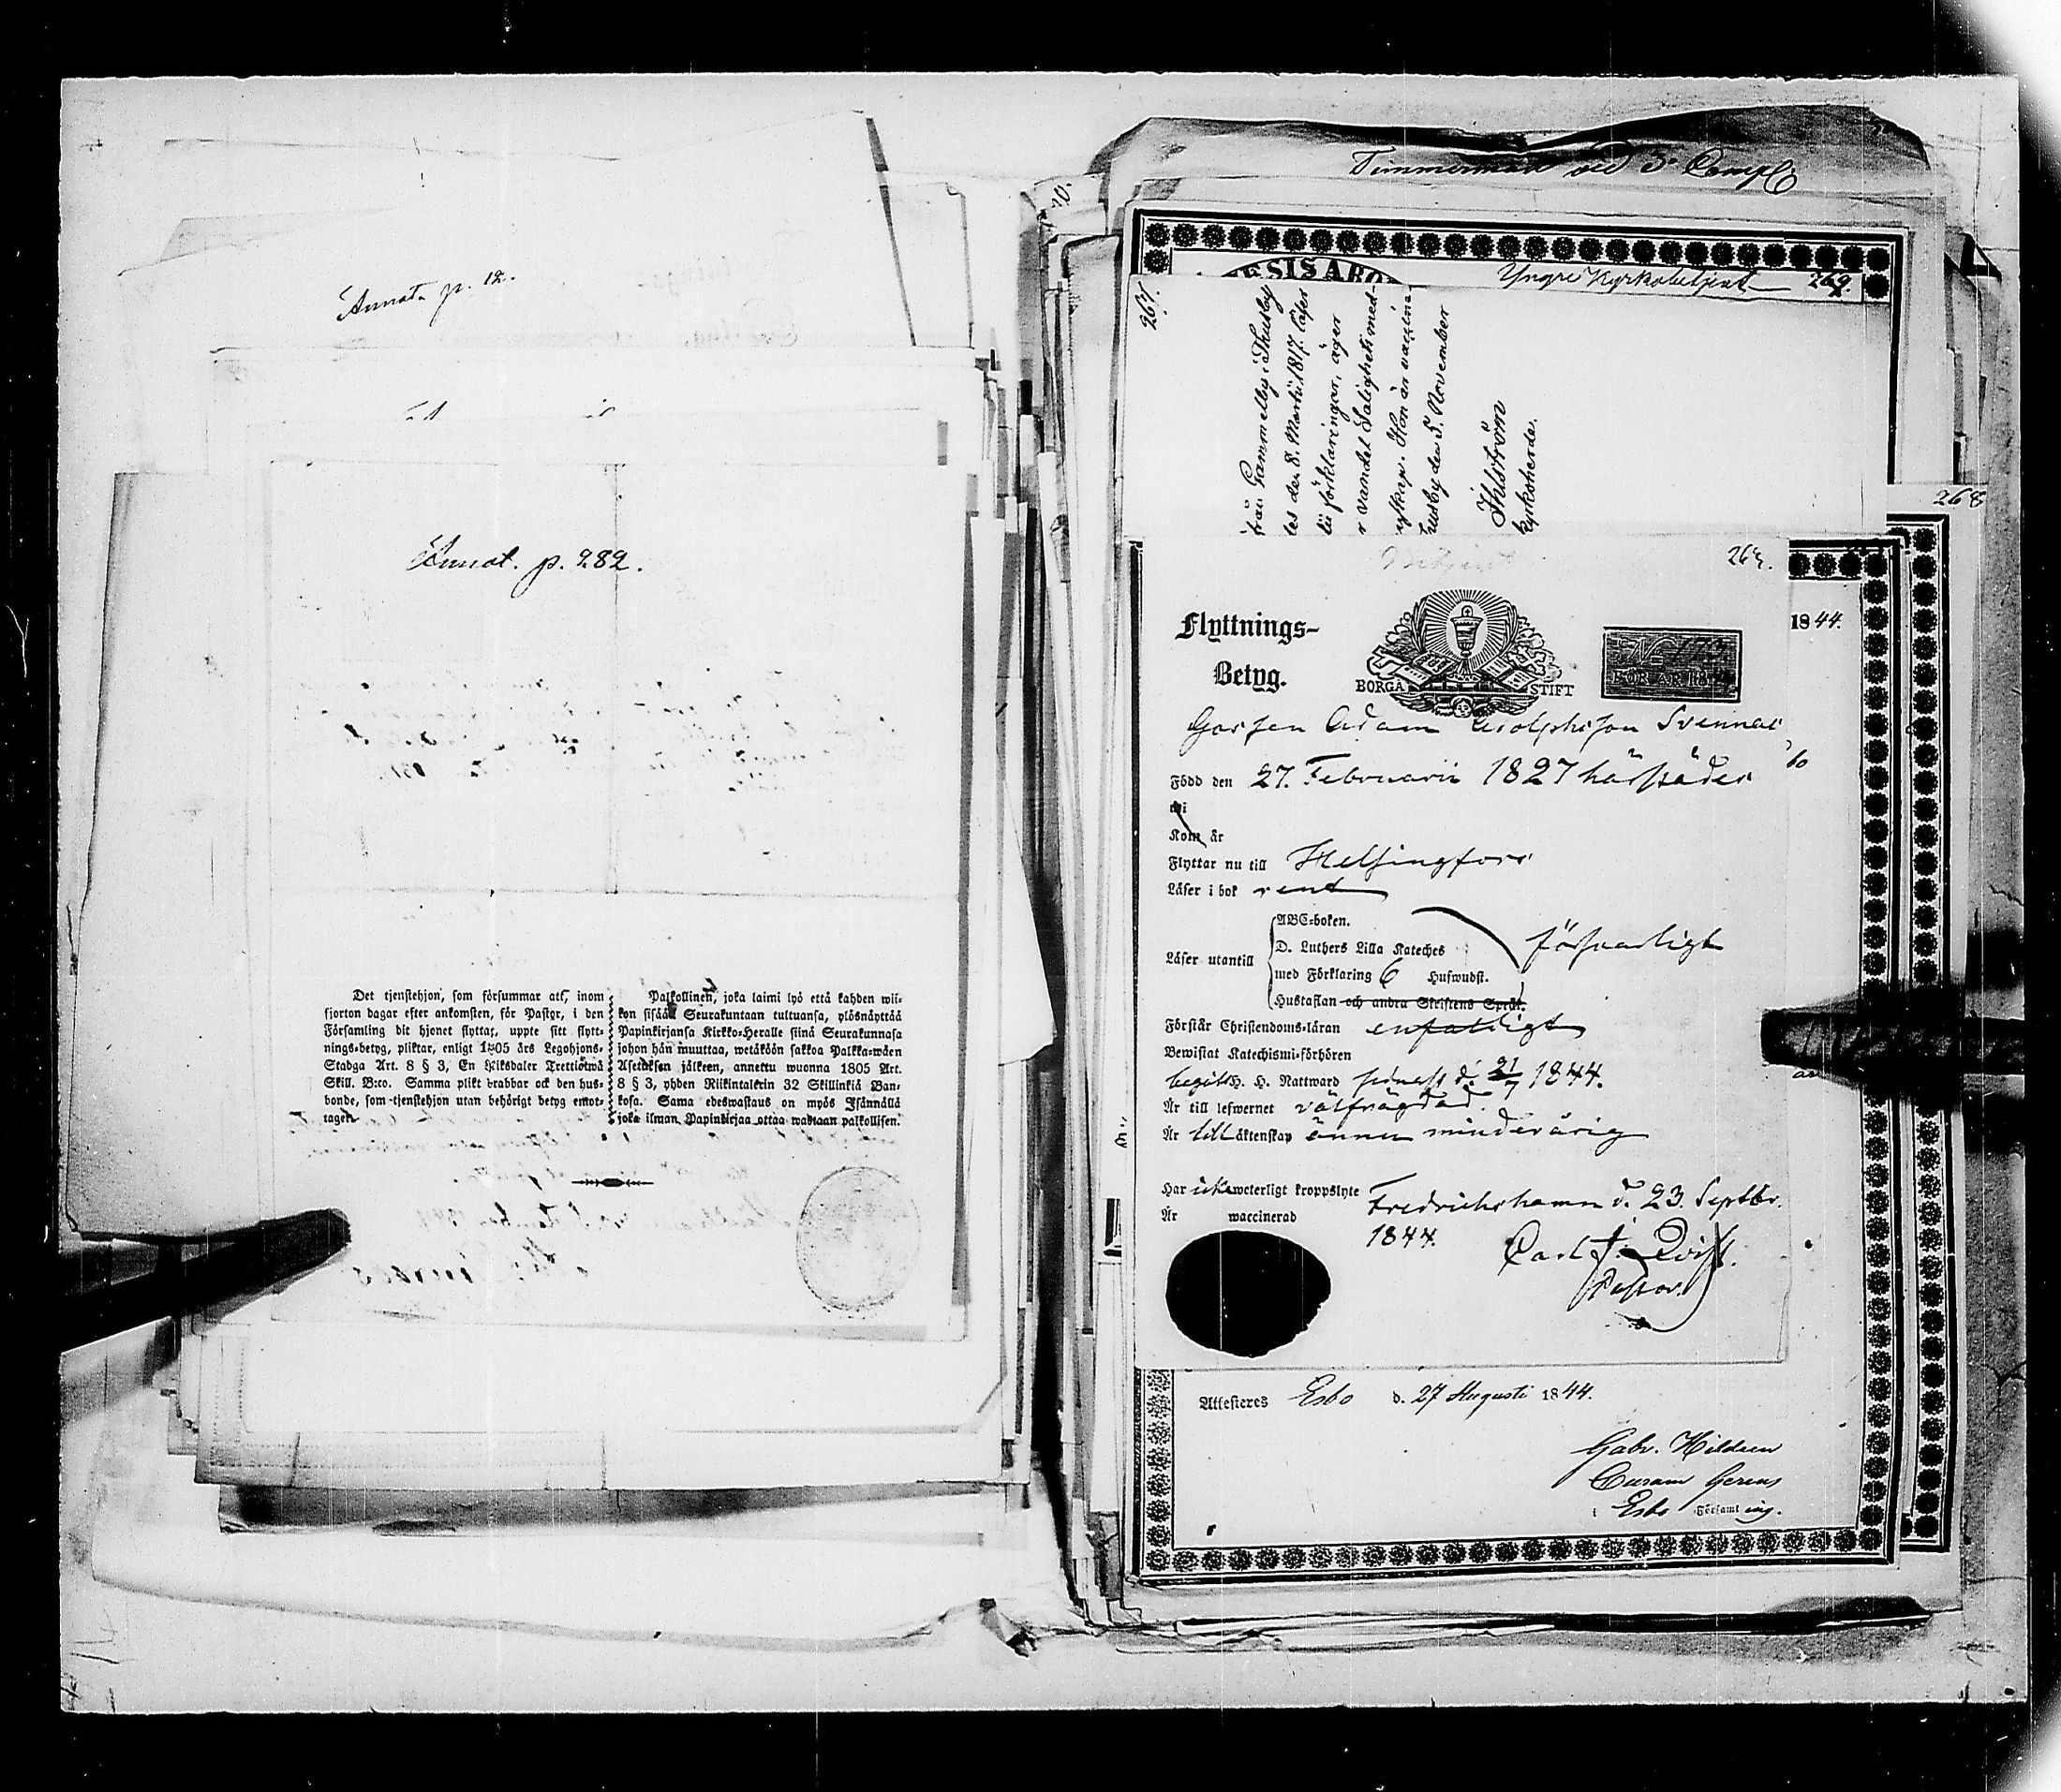 Annot. p. 12.
Annot. p. 282.
Det tjenstehjon, som försummar att, inom
fjorton dagar efter ankomsten, för Pastor, i den
Församling dit hjonet flyttat, uppte sitt flytt-
nings-betyg, pliktar, enligt 1805 års Legohjons-
Stadga Art. 8 § 3, En Riksdaler Trettiotwå
Skill. B:co. Samma plikt drabbar ock den hus-
bonde, som tjenstehjon utan behörigt betyg emot-
tager.
Palkollinen, joka laimi lyö että kahden wii-
kon sisää Seurakuntaan tultuansa, ylösnäyttää
Papinkirjansa Kirkko-Heralle siinä Seurakunnasa
johon hän muuttaa, wetäköön sakkoa Palkka-wäen
Asetuksen jälkeen, annettu wuonna 1805 Art.
8 § 3, yhden Riikintalerin 32 Skillinkiä Ban-
kosa. Sama edeswastaus on myös Isännällä
joka ilman Papinkirjaa ottaa wastaan palkollisen.
Timmerman vid 3e Comp
ESIS ABO
Yngre Kyrkobetjent 269.
267.
från Gammelby i Thusby
les den 8. Martii 1817. läser
lii förklaringar, äger
r vandel Salighetsmed-
nskap. Hon är vaccine-
husby den 5. November
Ihlström
kyrkoherde.
268
Betjent
264.
Flyttnings-
Betyg.
BORGÅ STIFT
No 173.
FÖR ÅR 1844
1844.
Gossen Adam Adolphsson Svennas
Född den 27. Februarii 1827 härstädes
Kom år
Flyttar nu till Helsingfors
Läser i bok rent
Läser utantill
ABC-boken.
D. Luthers Lilla Kateches
med Förklaring 6 Hufwudst.
Hustaflan och andra Skriftens Språk.
försvarligt
Förstår Christendoms-läran enfaldigt
Bewistat Katechismi-förhören
begått H. H. Nattward sednast d. 21/7 1844.
Är till lefwernet välfrägdad.
Är till äktenskap ännu minderårig
Har icke weterligt kroppslyte
Är waccinerad
Fredrichshamn d. 23. Septbr.
1844.
Carl J. Qvist.
Pastor.
Attesteres Esbo d. 27 Augusti 1844.
Gabr. Hildeen
Curam Gerens
i Esbo Församling.